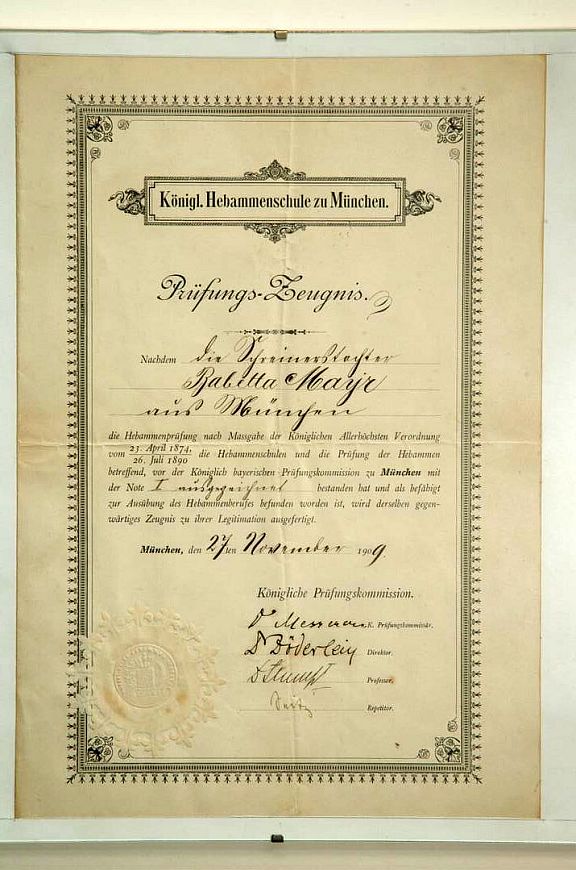 Königl. Hebammenschule zu München.
Prüfungs-Zeugnis.
Nachdem die Schreinerstochter
Babetta Mayr
aus München
die Hebammenprüfung nach Massgabe der Königlichen Allerhöchsten Verordnung
vom 23. April 1874, 26. Juli 1890 die Hebammenschulen und die Prüfung der Hebammen
betreffend, vor der Königlich bayerischen Prüfungskommission zu München mit
der Note I ausgezeichnet bestanden hat und als befähigt
zur Ausübung des Hebammenberufes befunden worden ist, wird derselben gegen-
wärtiges Zeugnis zu ihrer Legitimation ausgefertigt.
München, den 27ten November 1909.
Königliche Prüfungskommission.
Dr Messerer K. Prüfungskommissär.
Dr Döderlein Direktor.
Dr Stumpf Professor.
Seitz Repetitor.